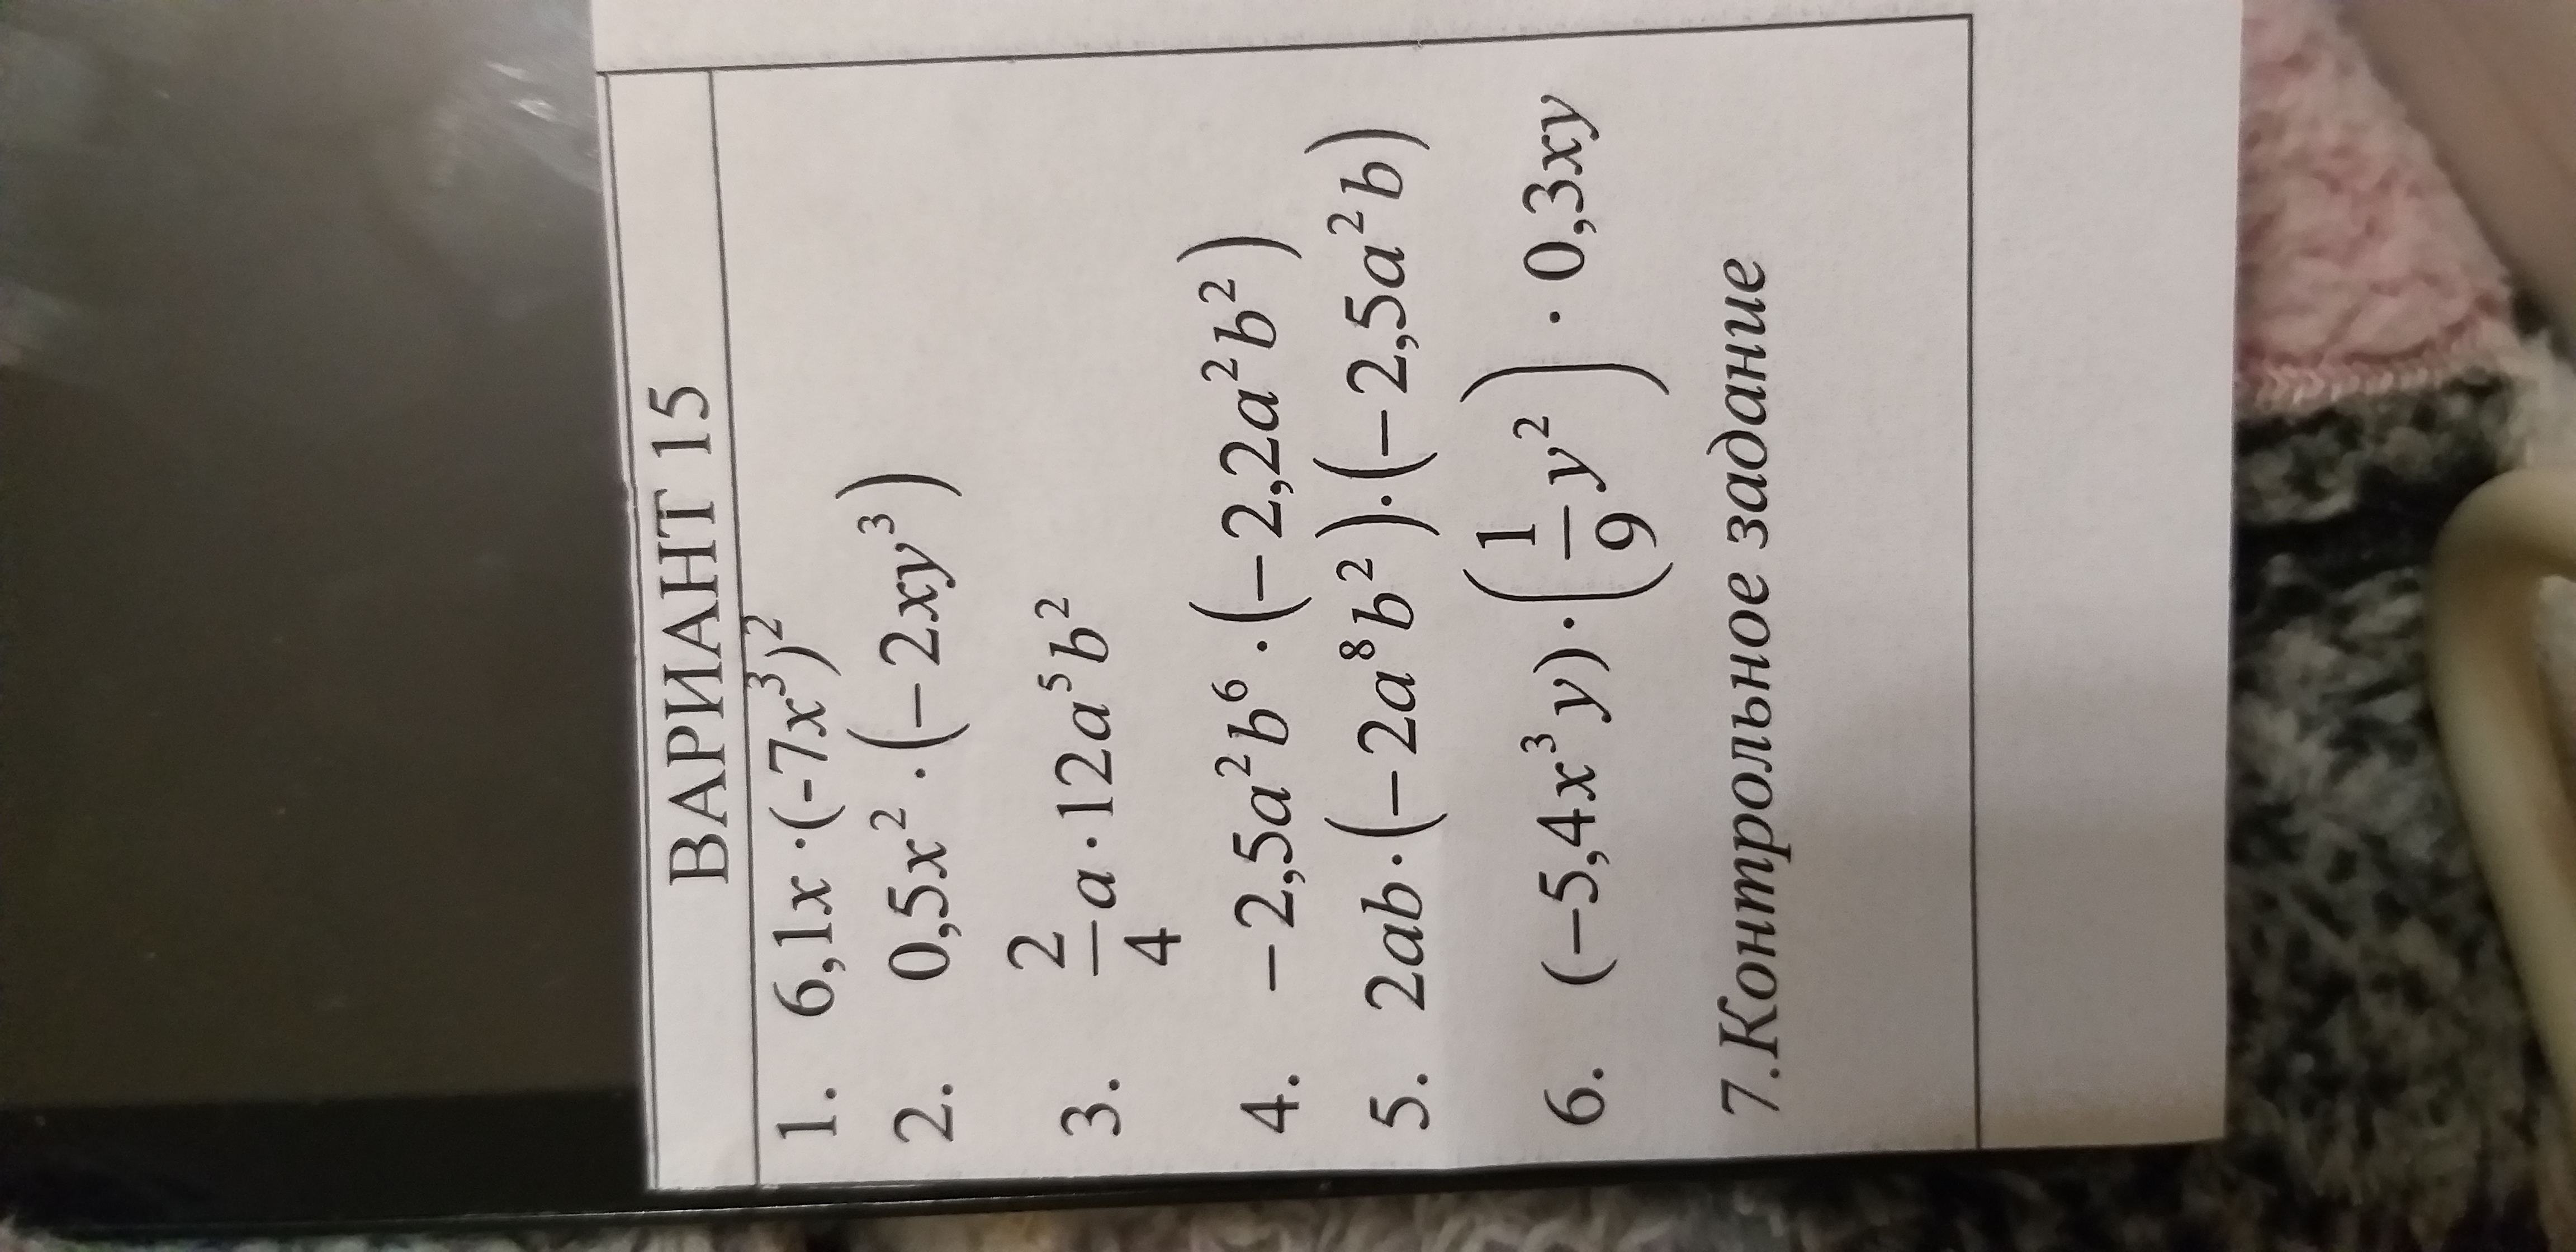 ВАРИАНТ 15
1. 6,1x·(-7x³)²
2. 0,5x²·(−2xy³)
3. 2/4 a·12a⁵b²
4. −2,5a²b⁶·(−2,2a²b²)
5. 2ab·(−2a⁸b²)·(−2,5a²b)
6. (−5,4x³y)·(1/9 y²)·0,3xy
7.Контрольное задание